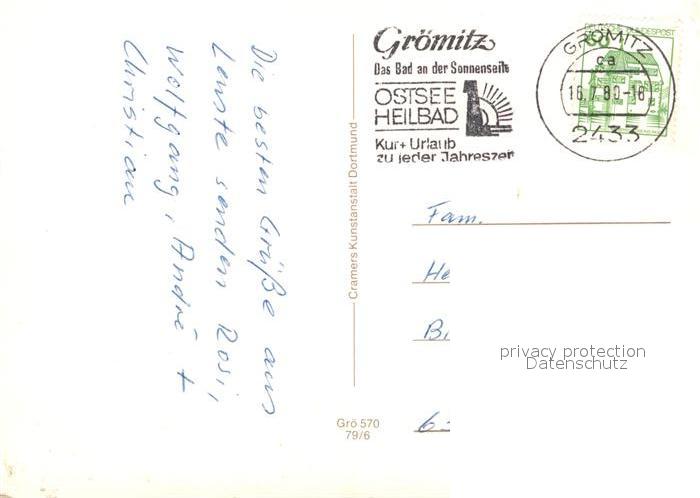 Die besten Grüße aus
senden Rosi,
Wolfgang, André +
Christian
Cramers Kunstanstalt Dortmund
Grö 570
79/6
Grömitz
Das Bad an der Sonnenseite
OSTSEE
HEILBAD
Kur + Urlaub
zu jeder Jahreszeit
GRÖMITZ
2433
Fam.
He
privacy protection
Datenschutz